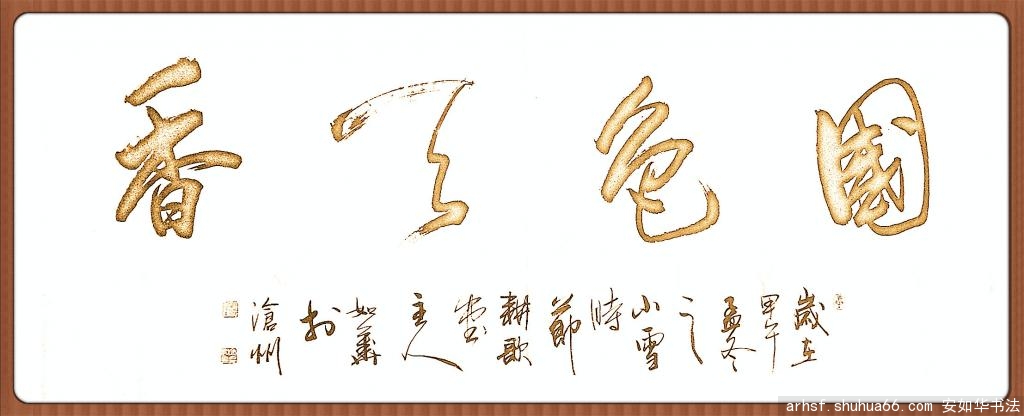 國色天香
歲在
甲午
孟冬
之
小雪
時
節
耕歌
堂
主人
如華
於
滄州
arhsf.shuhua66.com 安如华书法